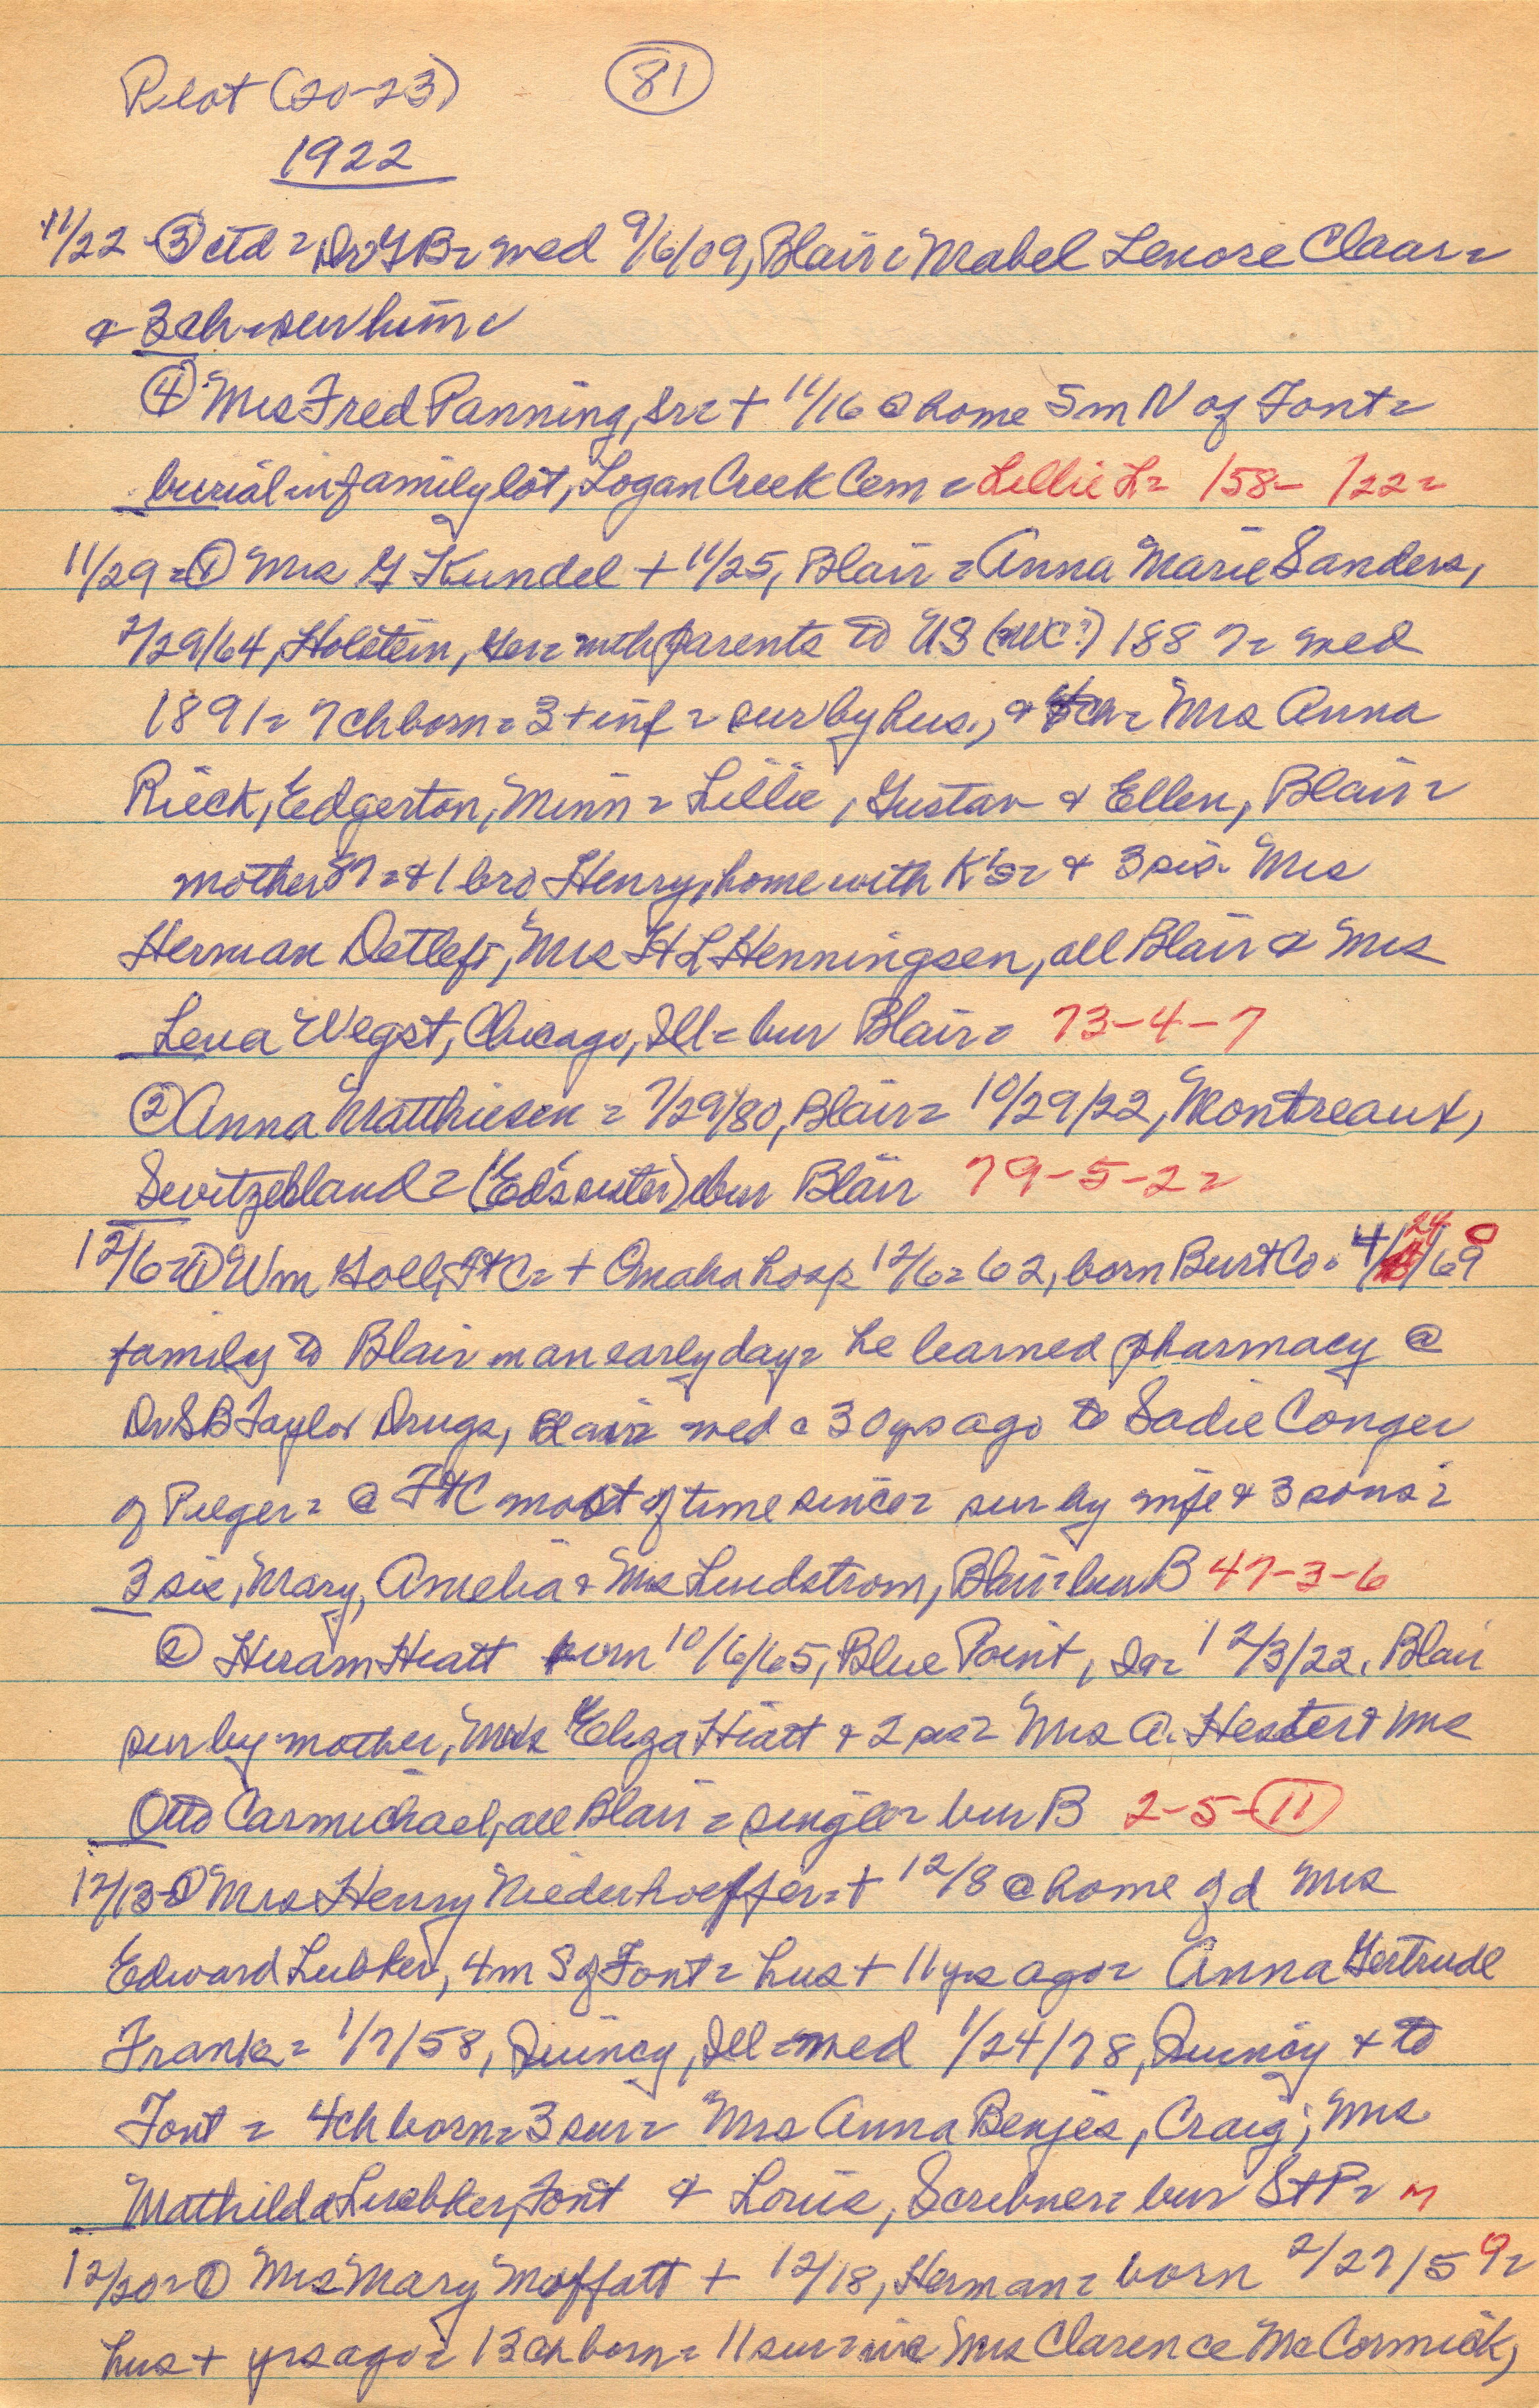 Pilot (20-23) 81
1922
11/22 ③ ctd = Dr G B = med 9/6/09, Blair = Mabel Lenore Claar =
& 3 ch = sur him =
④ Mrs Fred Panning, Sr = + 11/16 @ home 5 m N of Font =
burial in family lot, Logan Creek Cem = Lillie L = 158- 122 =
11/29 = ① Mrs G Kundel + 11/25, Blair = Anna Marie Sanders,
2/29/64, Holstein, Ger = with parents to US (WC?) 1887 = med
1891 = 7 ch born = 3 + inf = sur by hus., & 4 ch = Mrs Anna
Rieck, Edgerton, Minn = Lillie, Gustav & Ellen, Blair =
mother 87 = & 1 bro Henry, home with K's = & 3 sis = Mrs
Herman Detlefs, Mrs H L Henningsen, all Blair & Mrs
Lena Wegst, Chicago, Ill = bur Blair = 73-4-7
② Anna Matthiesen = 7/29/80, Blair = 10/29/22, Montreaux,
Switzebland = (Ed's sister) bur Blair 79-5-2 =
12/6 = ① Wm Goll, FtC = + Omaha hosp 12/6 = 62, born Burt Co = 4/24/60
family to Blair in an early day = he learned pharmacy @
Dr S B Taylor Drugs, Blair = med c 30 yrs ago to Sadie Conger
of Pilger = @ FtC most of time since = sur by wife & 3 sons =
3 sis, Mary, Amelia & Mrs Lundstrom, Blair = bur B 47-3-6
② Hiram Hiatt born 10/6/65, Blue Point, Ia = 12/3/22, Blair
sur by mother, Mrs Eliza Hiatt & 2 sis = Mrs A. Hester & Mrs
Otto Carmichael, all Blair = single = bur B 2-5-11
12/13 = ① Mrs Henry Niederhoeffer = + 12/8 @ home of d Mrs
Edward Lubker, 4 m S of Font = hus + 11 yrs ago = Anna Gertrude
Frank = 1/7/58, Quincy, Ill = med 1/24/78, Quincy & to
Font = 4 ch born = 3 sur = Mrs Anna Benjes, Craig; Mrs
Mathilda Luebker, Font & Louis, Scribner = bur St P =
12/20 = ① Mrs Mary Moffatt + 12/18, Herman = born 2/27/59 =
hus + yrs ago = 13 ch born = 11 sur = Mrs Clarence McCormick,